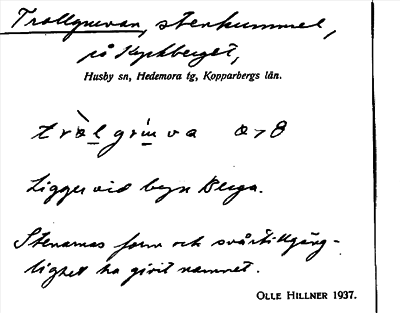 Trollgruvan, stenkummel,
på Kyrkberget,
Husby sn, Hedemora tg, Kopparbergs län.
Ligger vid byn Berga.
Stenarnas form och svårtillgäng-
lighet ha givit namnet.
OLLE HILLNER 1937.